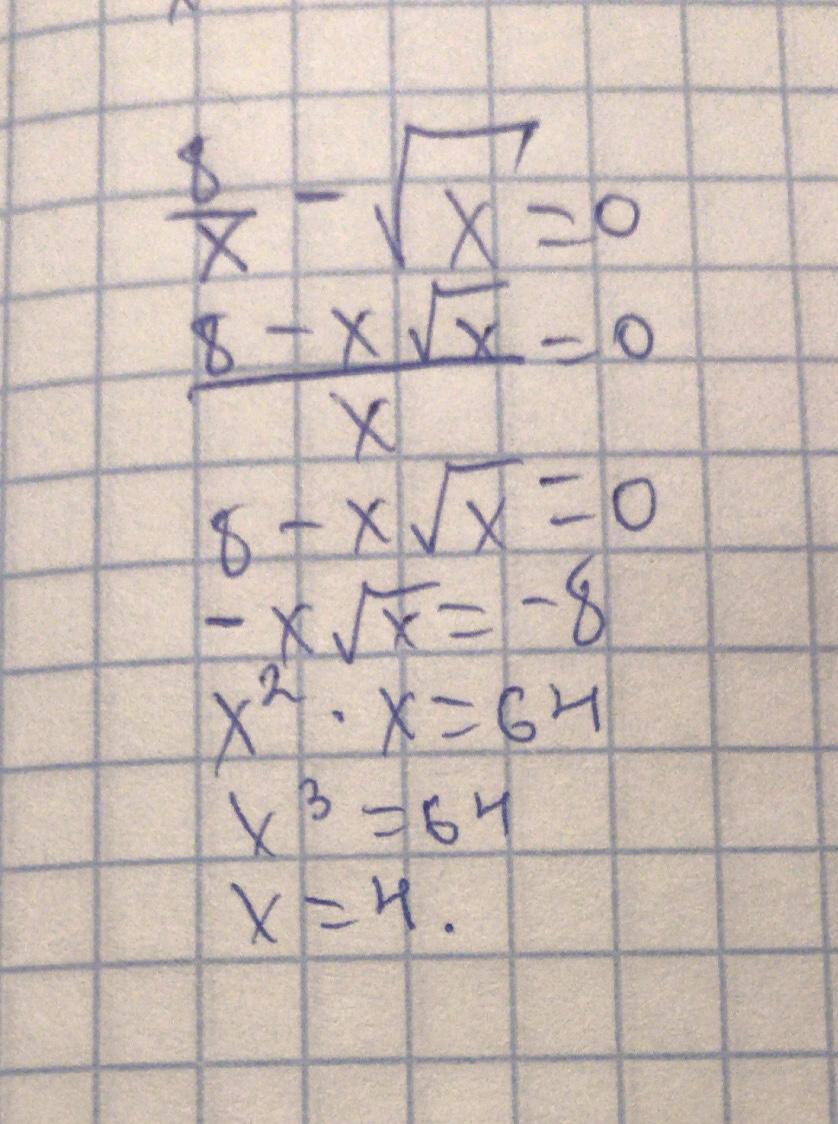 8/x - √x = 0
(8 - x√x)/x = 0
8 - x√x = 0
- x√x = -8
x² · x = 64
x³ = 64
x = 4.